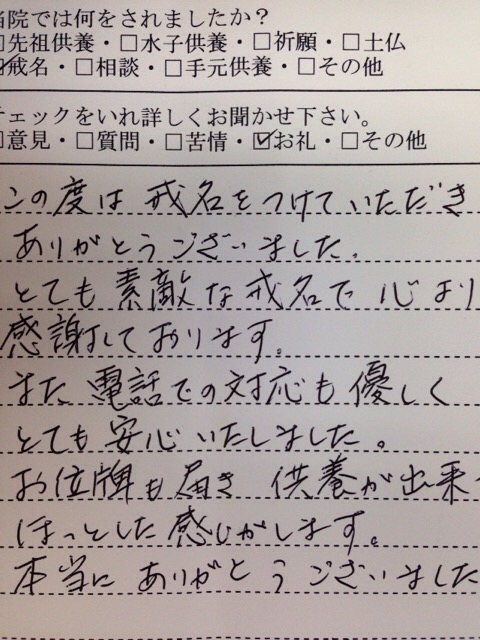 当院では何をされましたか？
□先祖供養・□水子供養・□祈願・□土仏
☑戒名・□相談・□手元供養・□その他
チェックをいれ詳しくお聞かせ下さい。
□意見・□質問・□苦情・☑お礼・□その他
この度は戒名をつけていただき
ありがとうございました。
とても素敵な戒名で心より
感謝しております。
また電話での対応も優しく
とても安心いたしました。
お位牌も届き供養が出来
ほっとした感じがします。
本当にありがとうございました